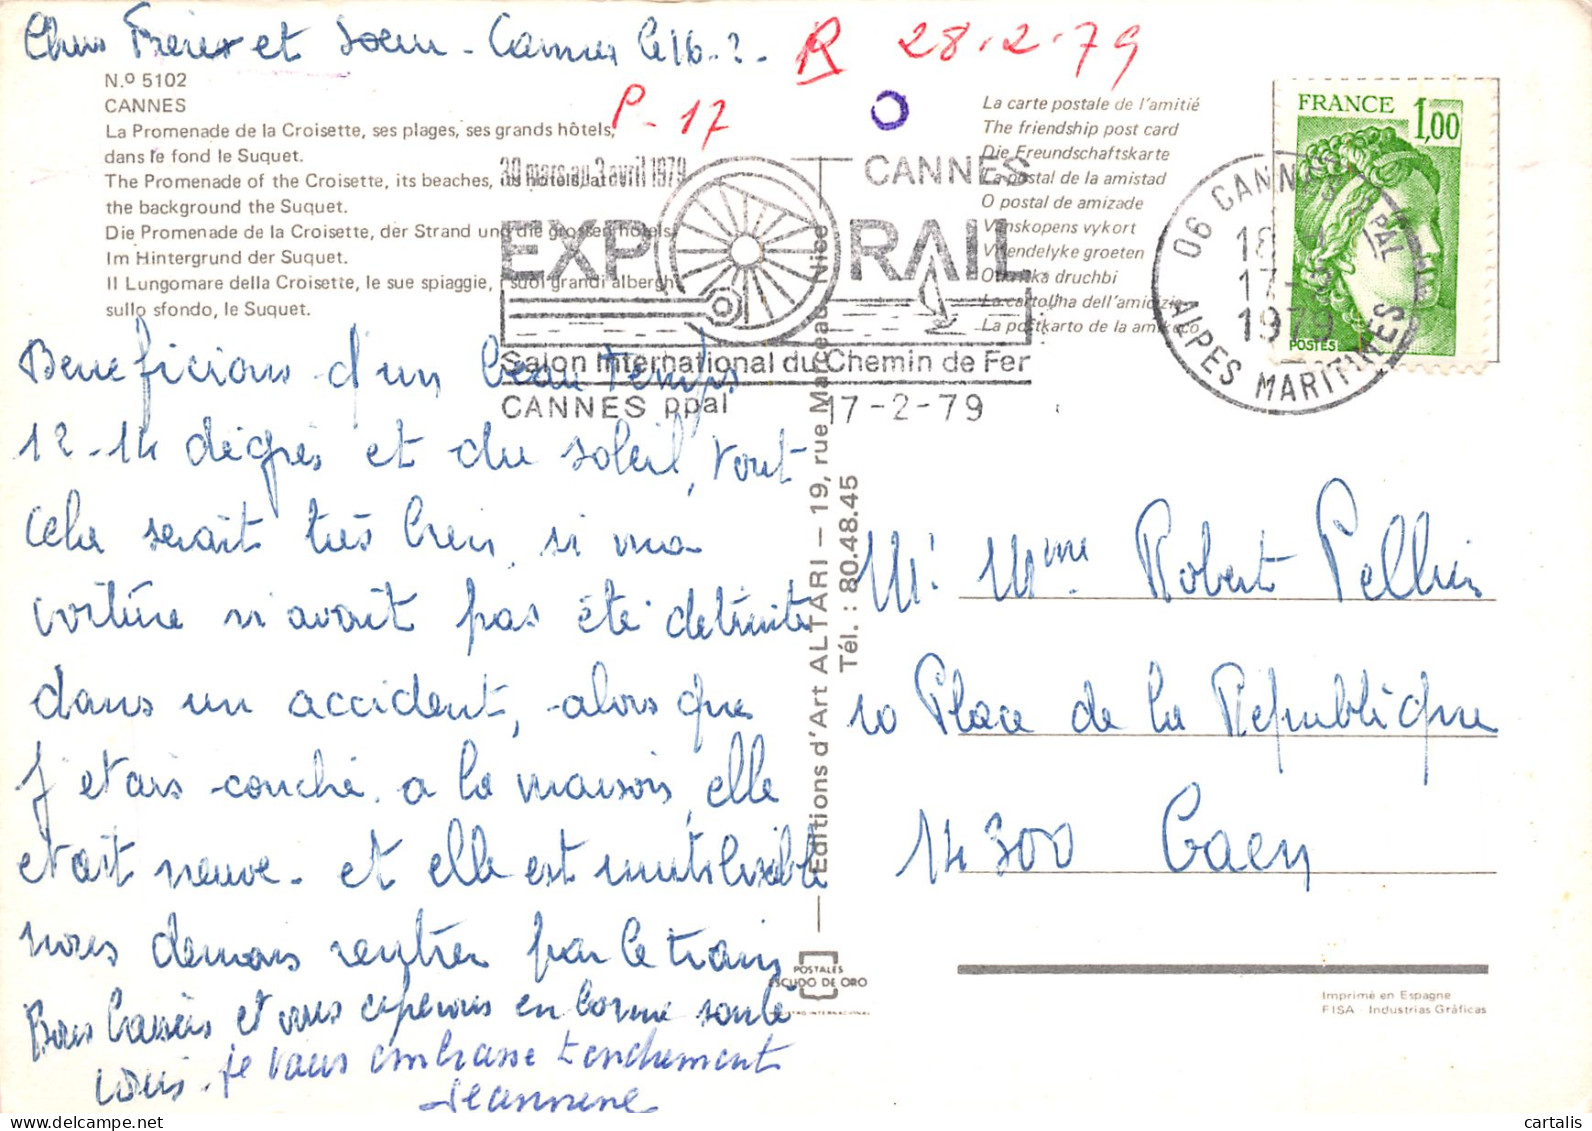 Chers Frère et Soeur - Cannes le 16-2-
R 28-2-79
P-17
N.º 5102
CANNES
La Promenade de la Croisette, ses plages, ses grands hôtels,
dans le fond le Suquet.
The Promenade of the Croisette, its beaches, its hotels, at
the background the Suquet.
Die Promenade de la Croisette, der Strand und die grossen hotels,
Im Hintergrund der Suquet.
Il Lungomare della Croisette, le sue spiaggie, i suoi grandi alberghi
sullo sfondo, le Suquet.
La carte postale de l'amitié
The friendship post card
Die Freundschaftskarte
La postal de la amistad
O postal de amizade
Vanskopens vykort
Vriendelyke groeten
druchbi
La cartolina dell'amicizia
La postkarto de la amikeco
30 mars au 3 avril 1979
CANNES
EXPORAIL
Salon International du Chemin de Fer
CANNES ppal 17-2-79
FRANCE 1,00
POSTES
06 CANNES PPAL
18 H
17-2
1979
ALPES MARITIMES
Beneficions d'un beau temps
12-14 degrés et du soleil, tout
cela serait très bien, si ma
voiture n'avait pas été détruite
dans un accident, alors que
j'etais couché a la maison, elle
etait neuve - et elle est inutilisable
nous devons rentrer par le train
Bons baisers et vous esperons en bonne santé
Louis - je vous embrasse tendrement
Jeannine
Editions d'Art ALTARI - 19, rue Marceau, Nice
Tél. : 80.48.45
M. Mme Robert Pellerin
10 Place de la République
14300 Caen
POSTALES
ESCUDO DE ORO
Imprimé en Espagne
FISA - Industrias Gráficas
cartalis